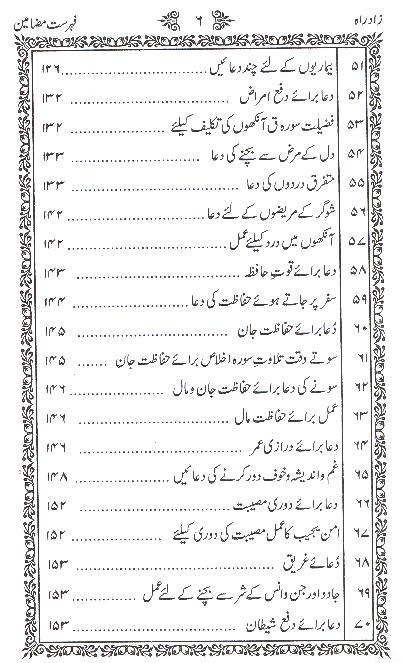 زاد راہ ۶ فہرست مضامین
۵۱ بیماریوں کے لئے چند دعائیں ۱۲۶
۵۲ دعا برائے دفع امراض ۱۳۲
۵۳ فضیلت سورہ ق آنکھوں کی تکلیف کیلئے ۱۳۲
۵۴ دل کے مرض سے بچنے کی دعا ۱۳۳
۵۵ متفرق دردوں کی دعا ۱۳۳
۵۶ شوگر کے مریضوں کے لئے دعا ۱۴۲
۵۷ آنکھوں میں درد کیلئے عمل ۱۴۲
۵۸ دعا برائے قوتِ حافظہ ۱۴۳
۵۹ سفر پر جاتے ہوئے حفاظت کی دعا ۱۴۴
۶۰ دُعا برائے حفاظت جان ۱۴۵
۶۱ سوتے وقت تلاوتِ سورہ اخلاص برائے حفاظت جان ۱۴۵
۶۲ سونے کی دعا برائے حفاظت جان و مال ۱۴۶
۶۳ عمل برائے حفاظت مال ۱۴۶
۶۴ دعا برائے درازی عمر ۱۴۶
۶۵ غم و اندیشہ و خوف دور کرنے کی دعائیں ۱۴۸
۶۶ دعا برائے دوری مصیبت ۱۵۲
۶۷ امن یجیب کا عمل مصیبت کی دوری کیلئے ۱۵۲
۶۸ دُعائے غریق ۱۵۳
۶۹ جادو اور جن و انس کے شر سے بچنے کے لئے عمل ۱۵۳
۷۰ دعا برائے دفع شیطان ۱۵۳